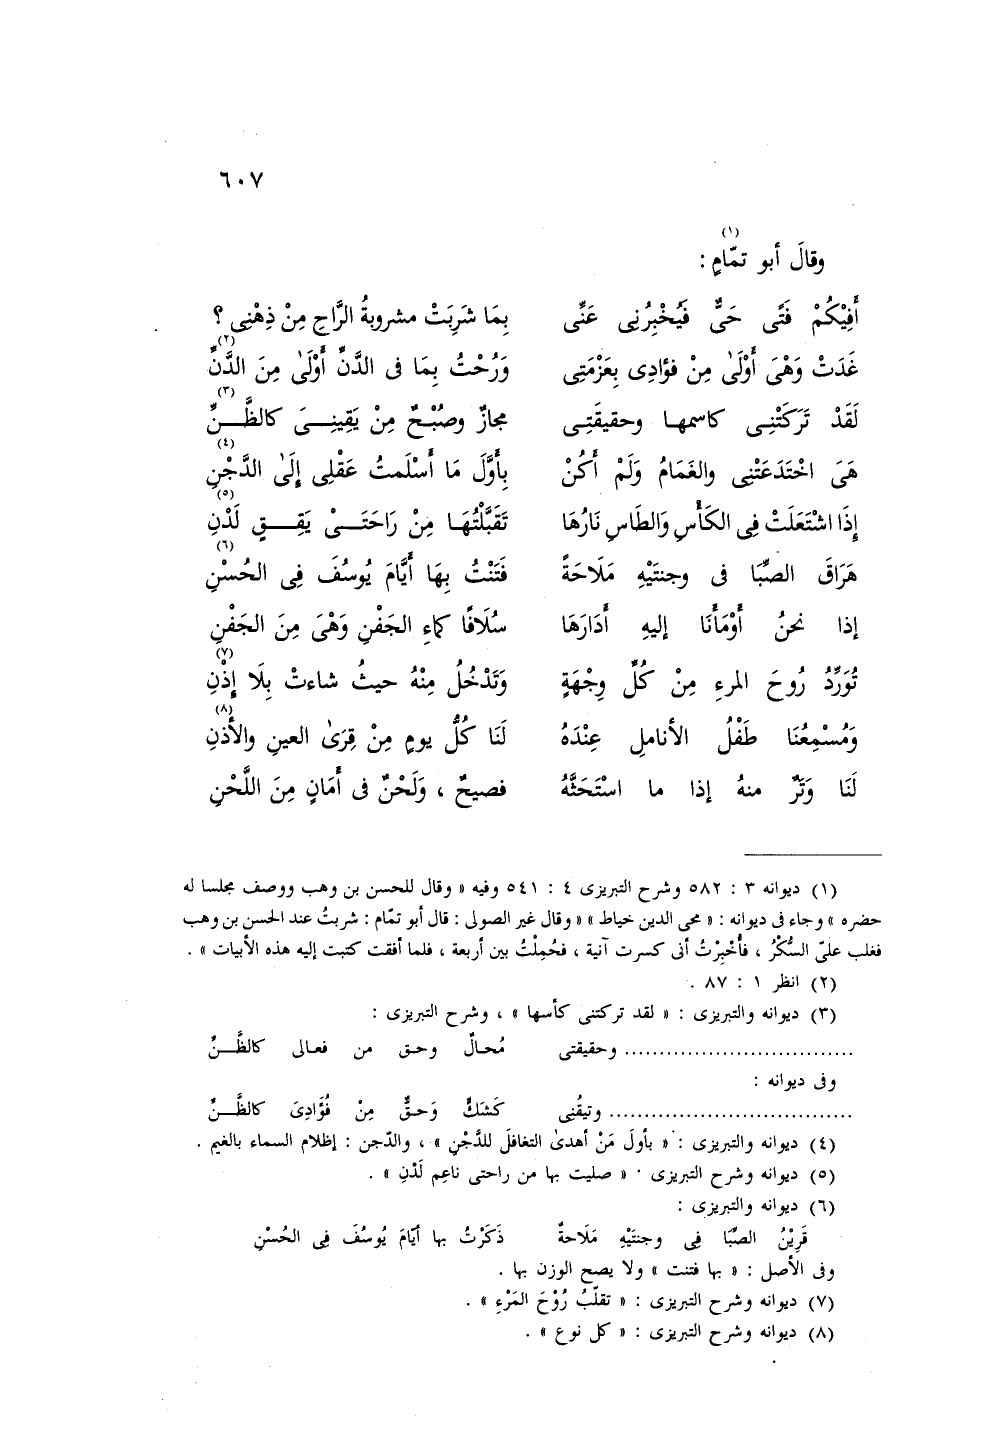 ٦٠٧
وقالَ أبو تمّامٍ(١) :
أَفِيْكُمْ فَتًى حَىٌّ فَيُخْبِرُنِى عَنِّى بِمَا شَرِبَتْ مشروبةُ الرَّاحِ مِنْ ذِهْنِى ؟
غَدَتْ وَهْىَ أَوْلَىٰ مِنْ فؤادِى بِعَزْمَتِى وَرُحْتُ بِمَا فى الدَّنِّ أَوْلَىٰ مِنَ الدَّنِّ(٢)
لَقَدْ تَرَكَتْنِى كاسمها وحقيقَتِى مجازٌ وصُبْحٌ مِنْ يَقِينِىَ كالظَّنِّ(٣)
هِىَ اخْتَدَعَتْنِى والغَمَامُ وَلَمْ أَكُنْ بِأَوَّلَ مَا أَسْلَمتُ عَقْلِى إِلَىٰ الدَّجْنِ(٤)
إِذَا اشْتَعَلَتْ فِى الكَأْسِ وَالطَاسِ نَارُهَا تَقَبَّلْتُهَا مِنْ رَاحَتَىْ يَقِقٍ لَدْنِ(٥)
هَرَاقَ الصِّبَا فى وجنتَيْهِ مَلَاحَةً فَتَنْتُ بِهَا أَيَّامَ يُوسُفَ فِى الحُسْنِ(٦)
إذا نحنُ أَوْمَأْنَا إليهِ أَدَارَهَا سُلَافًا كماءِ الجَفْنِ وَهْىَ مِنَ الجَفْنِ
تُوَرِّدُ رُوحَ المرءِ مِنْ كُلِّ وِجْهَةٍ وَتَدْخُلُ مِنْهُ حيثُ شاءتْ بِلَا إِذْنِ(٧)
وَمُسْمِعُنَا طَفْلُ الأناملِ عِنْدَهُ لَنَا كُلُّ يومٍ مِنْ قِرَىٰ العينِ والأُذنِ(٨)
لَنَا وَتَرٌ منهُ إذا ما اسْتَحَثَّهُ فصيحٌ ، وَلَحْنٌ فى أَمَانٍ مِنَ اللَّحْنِ
(١) ديوانه ٣ : ٥٨٢ وشرح التبريزى ٤ : ٥٤١ وفيه « وقال للحسن بن وهب ووصف مجلسا له
حضره » وجاء فى ديوانه : « محى الدين خياط » « وقال غير الصولى : قال أبو تمّام : شربتُ عند الحسن بن وهب
فغلب علىّ السُّكْرُ ، فأُخْبِرْتُ أنى كسرت آنية ، فحُمِلْتُ بين أربعة ، فلما أفقت كتبت إليه هذه الأبيات » .
(٢) انظر ١ : ٨٧ .
(٣) ديوانه والتبريزى : « لقد تركتنى كأسها » ، وشرح التبريزى :
................................. وحقيقتى مُحالٌ وحق من فعالى كالظَّنِّ
وفى ديوانه :
................................. وتيقُنِى كَشَكٌّ وَحقٌّ مِنْ فُؤَادِىَ كالظَّنِّ
(٤) ديوانه والتبريزى : « بأولَ مَنْ أهدىٰ التغافلَ للدَّجْنِ » ، والدّجن : إظلام السماء بالغيم .
(٥) ديوانه وشرح التبريزى · « صليت بها من راحتى ناعِم لَدْنِ » .
(٦) ديوانه والتبريزى :
قَرِيْنُ الصِّبَا فِى وجنتَيْهِ مَلَاحةٌ ذَكَرْتُ بها أيّامَ يُوسُفَ فِى الحُسْنِ
وفى الأصل : « بها فتنت » ولا يصح الوزن بها .
(٧) ديوانه وشرح التبريزى : « تقلّبُ رُوْحَ المَرْءِ » .
(٨) ديوانه وشرح التبريزى : « كل نوع » .